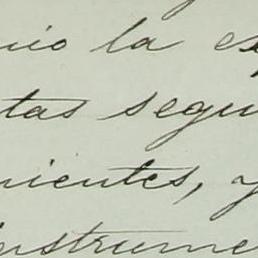 nio la es
tas segu
nientes, y
instrume